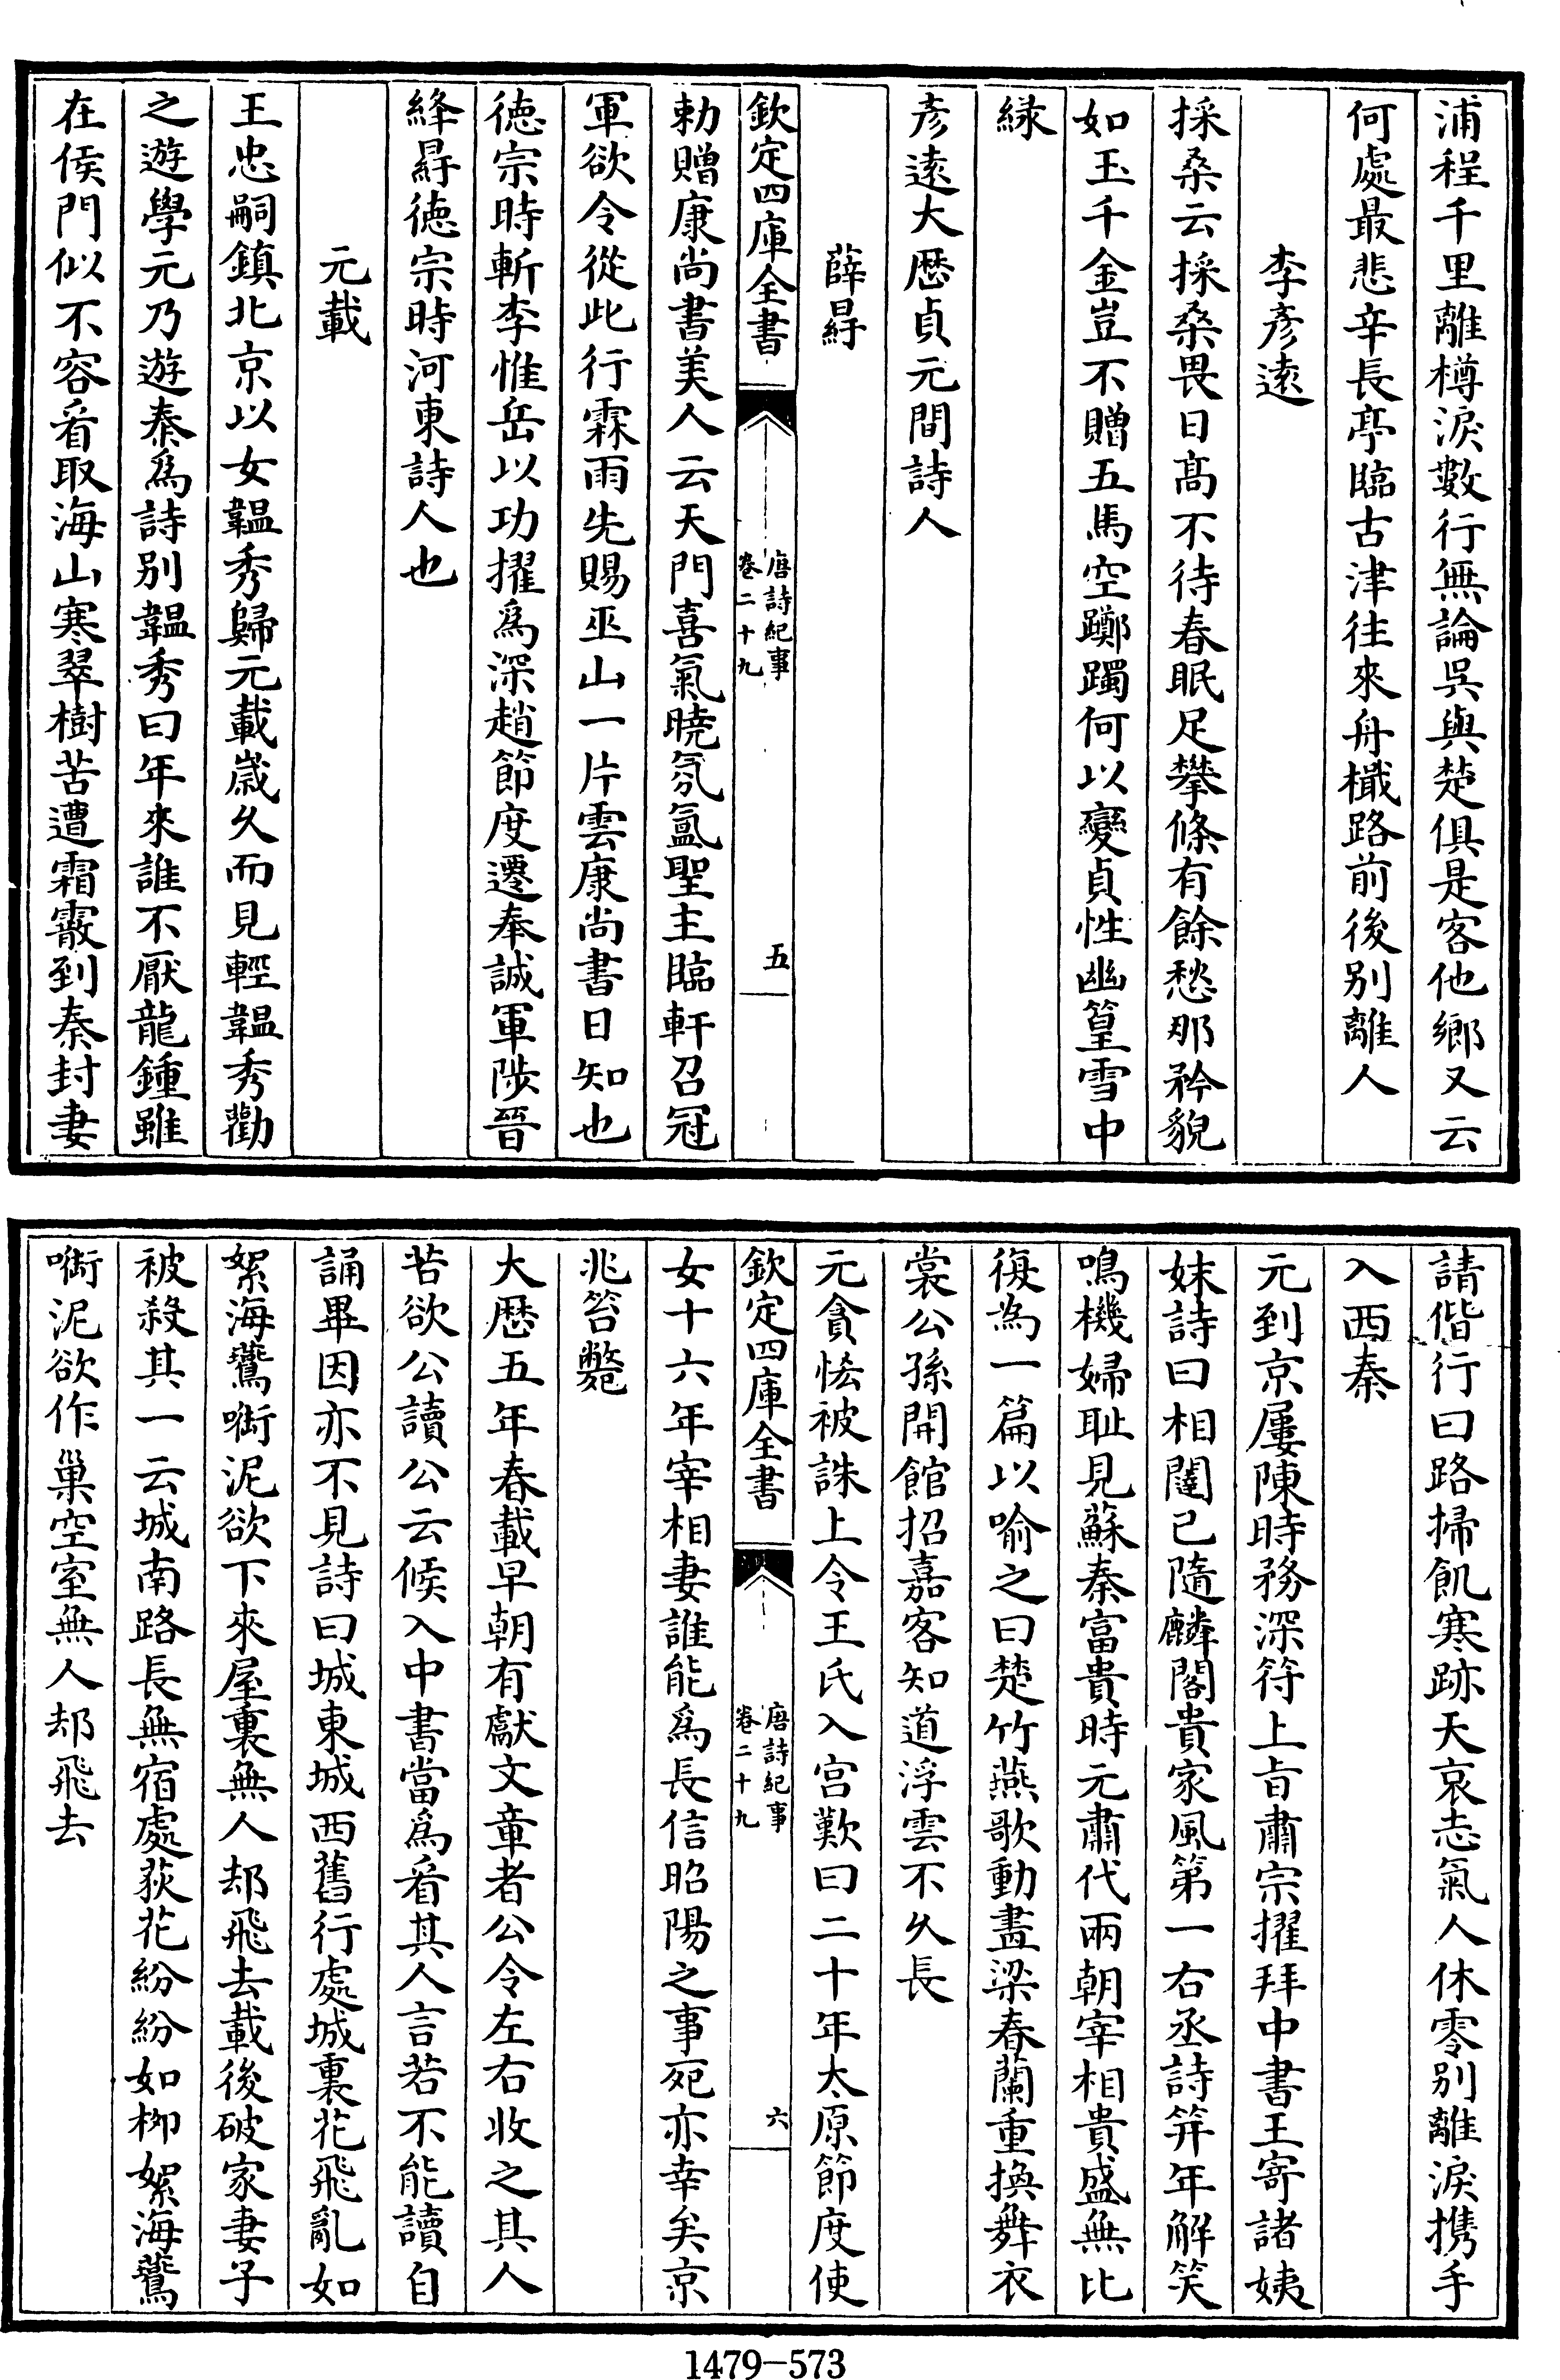 浦程千里離樽淚數行無論呉與楚俱是客他鄉又云
何處最悲辛長亭臨古津往來舟檝路前後别離人
李彥逺
採桑云採桑畏日髙不待春眠足攀條有餘愁那矜貌
如玉千金豈不贈五馬空躑躅何以變貞性幽篁雪中
緑
彥逺大厯貞元間詩人
薛㝵
欽定四庫全書
唐詩紀事
卷二十九
五
勅贈康尚書美人云天門喜氣曉氛氲聖主臨軒召冠
軍欲令從此行霖雨先賜巫山一片雲康尚書日知也
德宗時斬李惟岳以功擢為深趙節度遷奉誠軍陟晉
絳㝵德宗時河東詩人也
元載
王忠嗣鎮北京以女韞秀歸元載嵗久而見輕韞秀勸
之遊學元乃遊秦為詩别韞秀曰年來誰不厭龍鍾雖
在侯門似不容看取海山寒翠樹苦遭霜霰到秦封妻
請偕行曰路掃飢寒跡天哀志氣人休零别離淚攜手
入西秦
元到京屢陳時務深符上㫖肅宗擢拜中書王寄諸姨
妹詩曰相闥已隨麟閣貴家風第一右丞詩笄年解笑
鳴機婦恥見蘇秦富貴時元肅代兩朝宰相貴盛無比
復為一篇以喻之曰楚竹燕歌動畫梁春蘭重換舞衣
裳公孫開館招嘉客知道浮雲不久長
元貪恡被誅上令王氏入宫歎曰二十年太原節度使
欽定四庫全書
唐詩紀事
卷二十九
六
女十六年宰相妻誰能為長信昭陽之事死亦幸矣京
兆笞斃
大厯五年春載早朝有獻文章者公令左右收之其人
苦欲公讀公云候入中書當為看其人言若不能讀自
誦畢因亦不見詩曰城東城西舊行處城裏花飛亂如
絮海鷰啣泥欲下來屋裏無人却飛去載後破家妻子
被殺其一云城南路長無宿處荻花紛紛如柳絮海鷰
啣泥欲作巢空室無人却飛去
1479-573